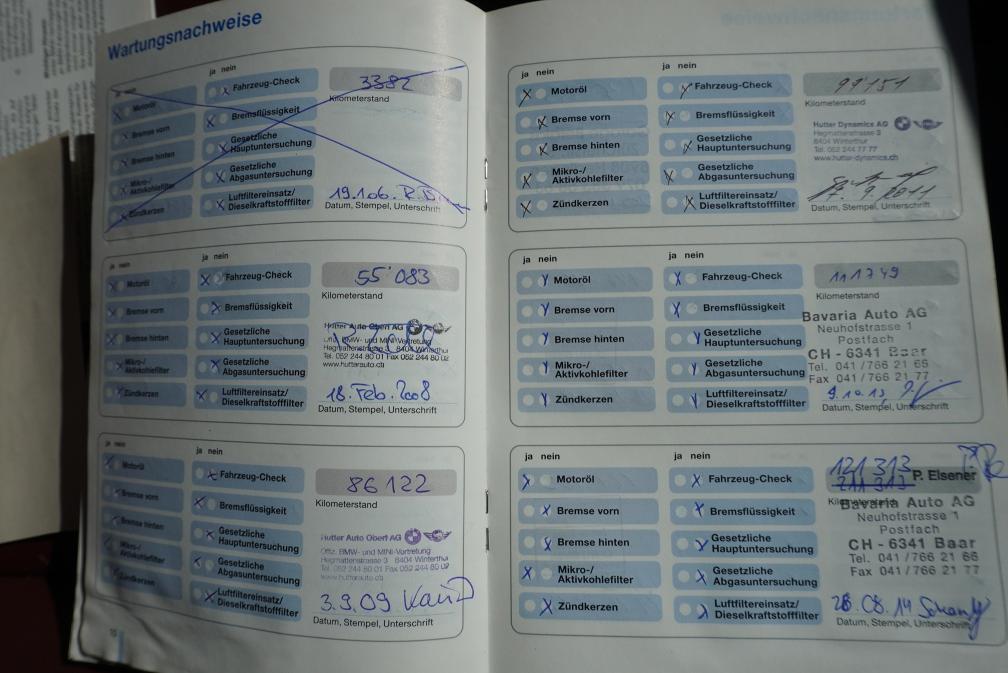 Wartungsnachweise
ja nein
ja nein
Motoröl
Bremse vorn
Bremse hinten
Mikro-/
Aktivkohlefilter
Zündkerzen
Fahrzeug-Check
Bremsflüssigkeit
Gesetzliche
Hauptuntersuchung
Gesetzliche
Abgasuntersuchung
Luftfiltereinsatz/
Dieselkraftstofffilter
3382
Kilometerstand
Datum, Stempel, Unterschrift
ja nein
ja nein
Motoröl
Bremse vorn
Bremse hinten
Mikro-/
Aktivkohlefilter
Zündkerzen
Fahrzeug-Check
Bremsflüssigkeit
Gesetzliche
Hauptuntersuchung
Gesetzliche
Abgasuntersuchung
Luftfiltereinsatz/
Dieselkraftstofffilter
55'083
Kilometerstand
Hutter Auto Oberi AG
Offiz. BMW- und MINI-Vertretung
Hegmattenstrasse 3 8404 Winterthur
Tel. 052 244 80 01 Fax 052 244 80 02
www.hutterauto.ch
18. Feb. 2008
Datum, Stempel, Unterschrift
ja nein
ja nein
Motoröl
Bremse vorn
Bremse hinten
Mikro-/
Aktivkohlefilter
Zündkerzen
Fahrzeug-Check
Bremsflüssigkeit
Gesetzliche
Hauptuntersuchung
Gesetzliche
Abgasuntersuchung
Luftfiltereinsatz/
Dieselkraftstofffilter
86122
Kilometerstand
Hutter Auto Oberi AG
Offiz. BMW- und MINI-Vertretung
Hegmattenstrasse 3 8404 Winterthur
Tel. 052 244 80 01 Fax 052 244 80 02
www.hutterauto.ch
3.9.09
Datum, Stempel, Unterschrift
ja nein
ja nein
Motoröl
Bremse vorn
Bremse hinten
Mikro-/
Aktivkohlefilter
Zündkerzen
Fahrzeug-Check
Bremsflüssigkeit
Gesetzliche
Hauptuntersuchung
Gesetzliche
Abgasuntersuchung
Luftfiltereinsatz/
Dieselkraftstofffilter
99'151
Kilometerstand
Hutter Dynamics AG
Hegmattenstrasse 3
8404 Winterthur
Tel. 052 244 77 77
www.hutter-dynamics.ch
Datum, Stempel, Unterschrift
ja nein
ja nein
Motoröl
Bremse vorn
Bremse hinten
Mikro-/
Aktivkohlefilter
Zündkerzen
Fahrzeug-Check
Bremsflüssigkeit
Gesetzliche
Hauptuntersuchung
Gesetzliche
Abgasuntersuchung
Luftfiltereinsatz/
Dieselkraftstofffilter
111749
Kilometerstand
Bavaria Auto AG
Neuhofstrasse 1
Postfach
CH - 6341 Baar
Tel. 041 / 766 21 66
Fax 041 / 766 21 77
9.10.13
Datum, Stempel, Unterschrift
ja nein
ja nein
Motoröl
Bremse vorn
Bremse hinten
Mikro-/
Aktivkohlefilter
Zündkerzen
Fahrzeug-Check
Bremsflüssigkeit
Gesetzliche
Hauptuntersuchung
Gesetzliche
Abgasuntersuchung
Luftfiltereinsatz/
Dieselkraftstofffilter
121 313
P. Elsener
Kilometerstand
Bavaria Auto AG
Neuhofstrasse 1
Postfach
CH - 6341 Baar
Tel. 041 / 766 21 66
Fax 041 / 766 21 77
28.08.14
Datum, Stempel, Unterschrift